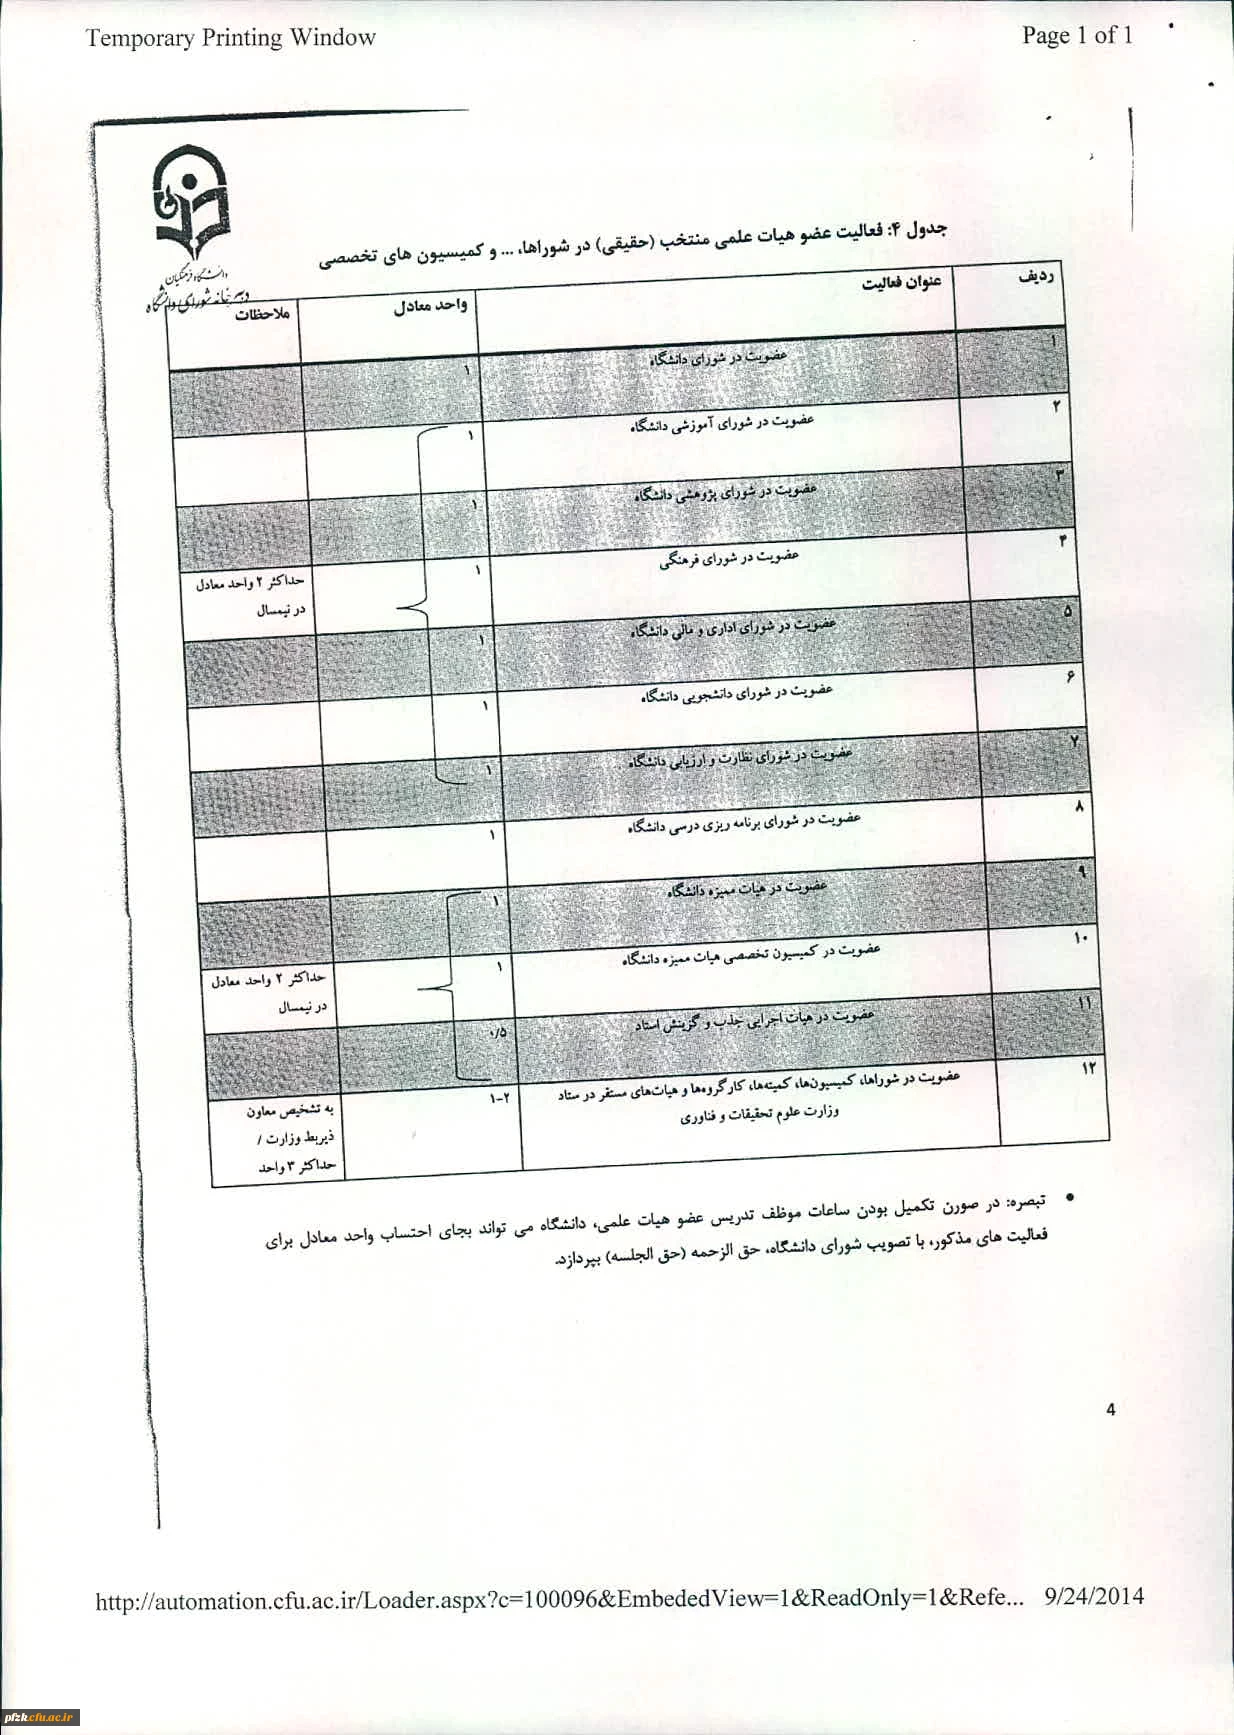 Temporary Printing Window
Page 1 of 1
دانشگاه فرهنگیان
دبیرخانه شورای دانشگاه
جدول ۴: فعالیت عضو هیات علمی منتخب (حقیقی) در شوراها، ... و کمیسیون های تخصصی
ردیف عنوان فعالیت واحد معادل ملاحظات
۱ عضویت در شورای دانشگاه ۱
۲ عضویت در شورای آموزشی دانشگاه ۱
۳ عضویت در شورای پژوهشی دانشگاه ۱
۴ عضویت در شورای فرهنگی ۱ حداکثر ۲ واحد معادل
در نیمسال
۵ عضویت در شورای اداری و مالی دانشگاه ۱
۶ عضویت در شورای دانشجویی دانشگاه ۱
۷ عضویت در شورای نظارت و ارزیابی دانشگاه ۱
۸ عضویت در شورای برنامه ریزی درسی دانشگاه ۱
۹ عضویت در هیات ممیزه دانشگاه ۱
۱۰ عضویت در کمیسیون تخصصی هیات ممیزه دانشگاه ۱ حداکثر ۲ واحد معادل
در نیمسال
۱۱ عضویت در هیات اجرایی جذب و گزینش استاد ۰/۵
۱۲ عضویت در شوراها، کمیسیون‌ها، کمیته‌ها، کارگروه‌ها و هیات‌های مستقر در ستاد ۱-۲ به تشخیص معاون
وزارت علوم تحقیقات و فناوری ذیربط وزارت /
حداکثر ۳ واحد
• تبصره: در صورن تکمیل بودن ساعات موظف تدریس عضو هیات علمی، دانشگاه می تواند بجای احتساب واحد معادل برای
فعالیت های مذکور، با تصویب شورای دانشگاه، حق الزحمه (حق الجلسه) بپردازد.
4
http://automation.cfu.ac.ir/Loader.aspx?c=100096&EmbededView=1&ReadOnly=1&Refe... 9/24/2014
pfzk.cfu.ac.ir